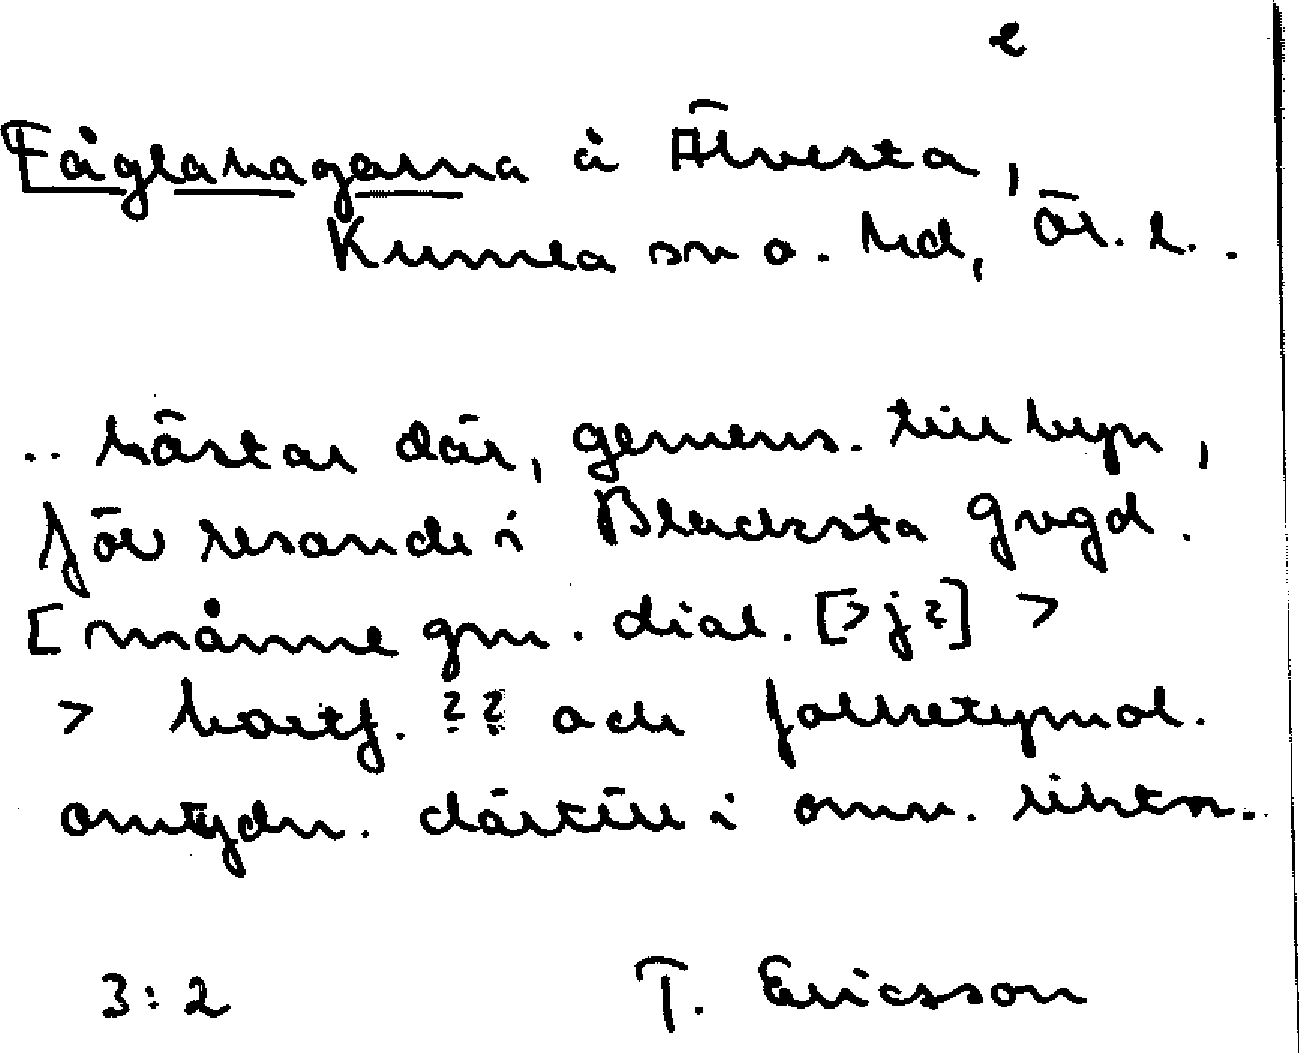 e
Fåglahagarna å Älvesta,
Kumla sn o. hd, Ör. l..
.. hästar där, gemens. till byn,
för resande i Blacksta gvgd.
[månne gm. dial. [>j?] >
> kortf. ?? och folketymol.
omtydn. därtill i omv. riktn..
3:2 T. Ericsson